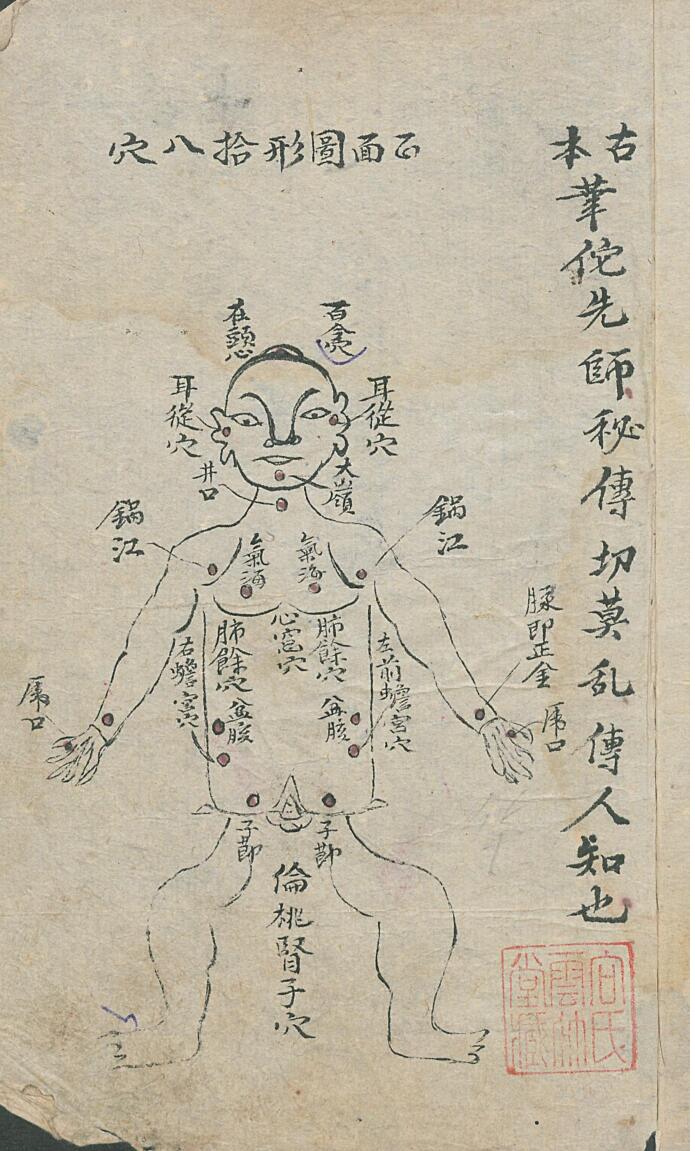 古本華佗先師秘傳切莫乱傳人知也
正面圖形拾八穴
百會穴
在頭心
耳從穴
耳從穴
井口
大嶺
鍋江
鍋江
氣海
氣海
心窩穴
肺餘穴
肺餘穴
左前蟾宮穴
右蟾宮穴
盆胲
盆胲
脉即正金
虎口
虎口
子節
子節
倫桃腎子穴
宫氏
堂藏